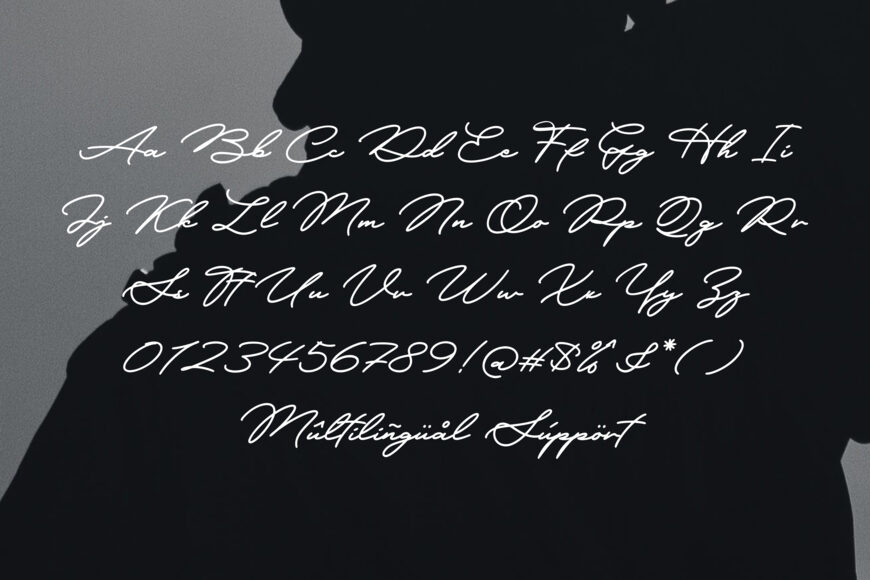 Aa Bb Cc Dd Ee Ff Gg Hh Ii
Jj Kk Ll Mm Nn Oo Pp Qq Rr
Ss Tt Uu Vv Ww Xx Yy Zz
0123456789!@#$%&*()
Mûltiliñgüål Súppört